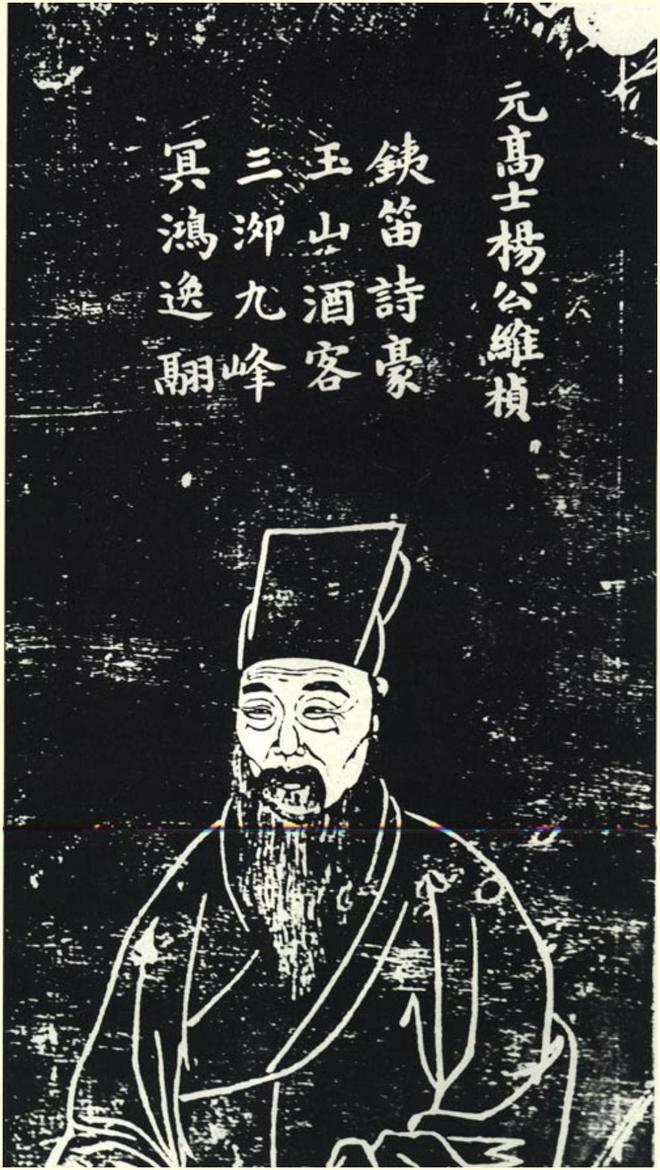 元高士楊公維楨
銕笛詩豪
玉山酒客
三泖九峰
冥鴻逸翮